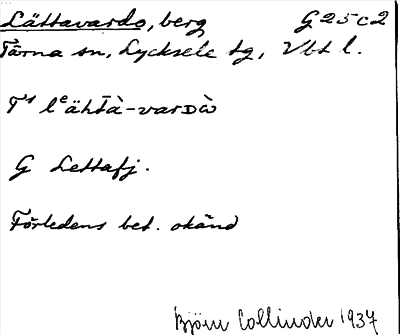 Lättavardo, berg G 25 c 2
Tärna sn, Lycksele tg, Vbt l.
T¹ lᵉäh̄t̄à-varᴅὼ
G Lettafj.
Förledens bet. okänd
Björn Collinder 1937